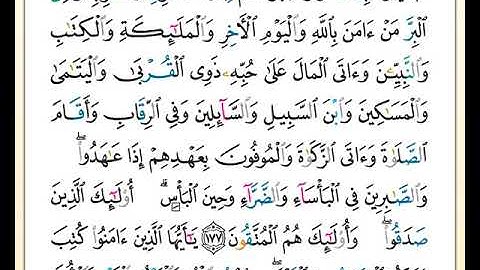 ٱلْبِرَّ مَنْ ءَامَنَ بِٱللَّهِ وَٱلْيَوْمِ ٱلْأَخِرِ وَٱلْمَلَٰٓئِكَةِ وَٱلْكِتَٰبِ
وَٱلنَّبِيِّـۧنَ وَءَاتَى ٱلْمَالَ عَلَىٰ حُبِّهِۦ ذَوِى ٱلْقُرْبَىٰ وَٱلْيَتَٰمَىٰ
وَٱلْمَسَٰكِينَ وَٱبْنَ ٱلسَّبِيلِ وَٱلسَّآئِلِينَ وَفِى ٱلرِّقَابِ وَأَقَامَ
ٱلصَّلَوٰةَ وَءَاتَى ٱلزَّكَوٰةَ وَٱلْمُوفُونَ بِعَهْدِهِمْ إِذَا عَٰهَدُوا۟ۖ
وَٱلصَّٰبِرِينَ فِى ٱلْبَأْسَآءِ وَٱلضَّرَّآءِ وَحِينَ ٱلْبَأْسِۗ أُو۟لَٰٓئِكَ ٱلَّذِينَ
صَدَقُوا۟ۖ وَأُو۟لَٰٓئِكَ هُمُ ٱلْمُتَّقُونَ ١٧٧ يَٰٓأَيُّهَا ٱلَّذِينَ ءَامَنُوا۟ كُتِبَ